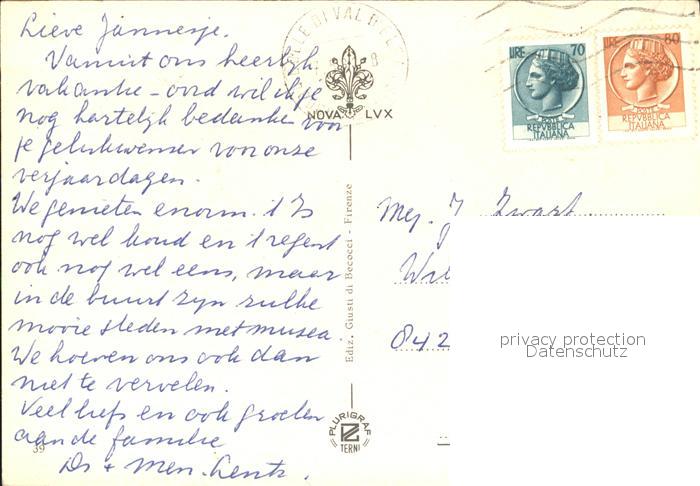 Lieve Jannesje.
Vanuit ons heerlijk
vakantie-oord wil ik je
nog hartelijk bedanken voor
je gelukwensen voor onze
verjaardagen.
We genieten enorm. 't Is
nog wel koud en 't regent
ook nog wel eens, maar
in de buurt zijn zulke
mooie steden met musea.
We hoeven ons ook dan
niet te vervelen.
Veel liefs en ook groeten
aan de familie
Ds + Mevr. Lentz.
39
NOVA LVX
Ediz. Giusti di Becocci - Firenze
PLURIGRAF
TERNI
LIRE 70
POSTE
REPVBBLICA
ITALIANA
LIRE 80
POSTE
REPVBBLICA
ITALIANA
Mej. J. Zwart
042
privacy protection
Datenschutz